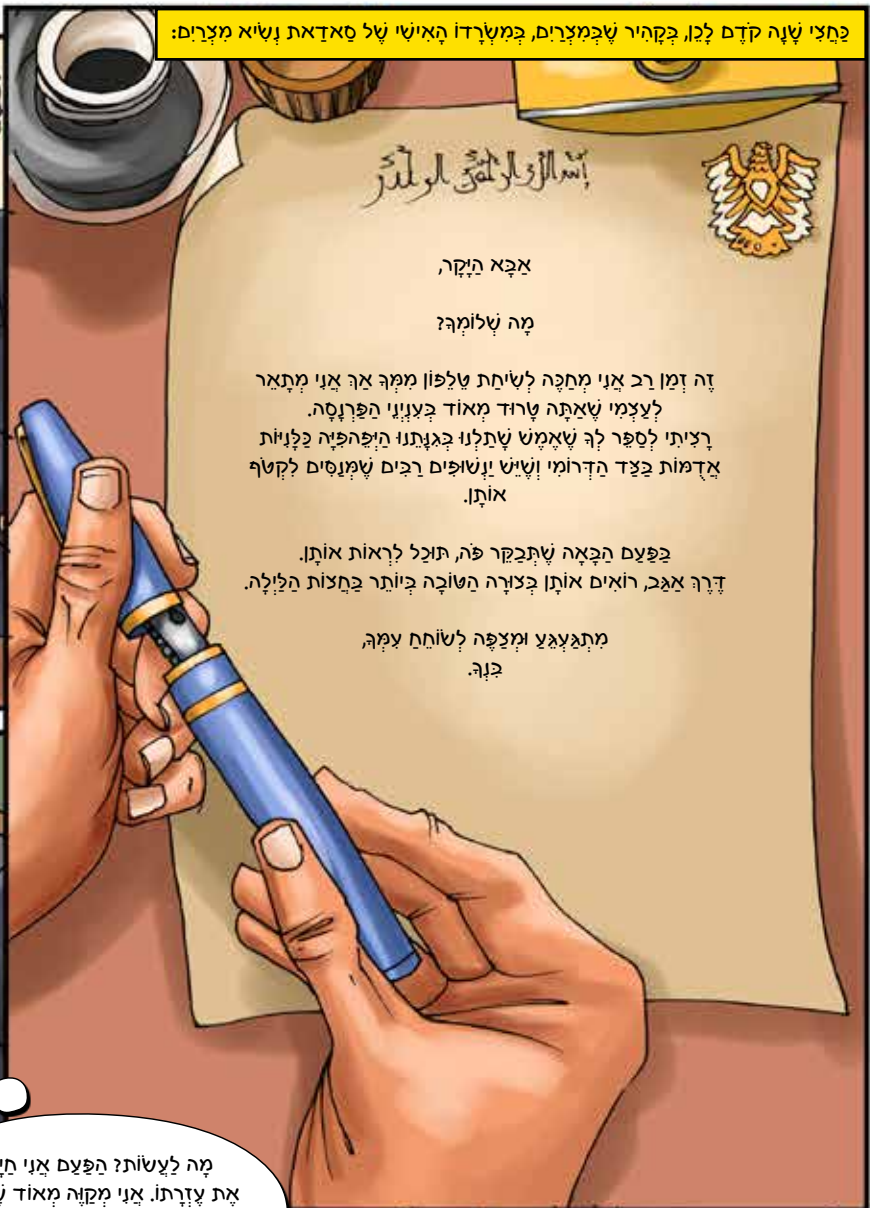 כַּחֲצִי שָׁנָה קֹדֶם לָכֵן, בְּקָהִיר שֶׁבְּמִצְרַיִם, בְּמִשְׂרָדוֹ הָאִישִׁי שֶׁל סַאדַאת נְשִׂיא מִצְרַיִם:
אַבָּא הַיָּקָר,
מָה שְׁלוֹמְךָ?
זֶה זְמַן רַב אֲנִי מְחַכֶּה לְשִׂיחַת טֵלֵפוֹן מִמְּךָ אַךְ אֲנִי מְתָאֵר
לְעַצְמִי שֶׁאַתָּה טָרוּד מְאוֹד בְּעִנְיְנֵי הַפַּרְנָסָה.
רָצִיתִי לְסַפֵּר לְךָ שֶׁאֶמֶשׁ שָׁתַלְנוּ בְּגִנָּתֵנוּ הַיְּפֵהפִיָּה כַּלָּנִיּוֹת
אֲדֻמּוֹת בַּצַּד הַדְּרוֹמִי וְשֶׁיֵּשׁ יַנְשׁוּפִים רַבִּים שֶׁמְּנַסִּים לִקְטֹף
אוֹתָן.
בַּפַּעַם הַבָּאָה שֶׁתְּבַקֵּר פֹּה, תּוּכַל לִרְאוֹת אוֹתָן.
דֶּרֶךְ אַגַּב, רוֹאִים אוֹתָן בְּצוּרָה הַטּוֹבָה בְּיוֹתֵר בַּחֲצוֹת הַלַּיְלָה.
מִתְגַּעְגֵּעַ וּמְצַפֶּה לְשׂוֹחֵחַ עִמְּךָ,
בִּנְךָ.
מָה לַעֲשׂוֹת? הַפַּעַם אֲנִי
אֶת עֶזְרָתוֹ. אֲנִי מְקַוֶּה מְאוֹד